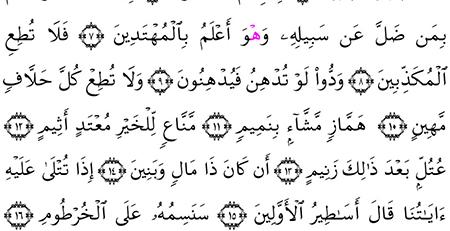 بِمَن ضَلَّ عَن سَبِيلِهِۦ وَهُوَ أَعْلَمُ بِٱلْمُهْتَدِينَ ﴿٧﴾ فَلَا تُطِعِ
ٱلْمُكَذِّبِينَ ﴿٨﴾ وَدُّوا۟ لَوْ تُدْهِنُ فَيُدْهِنُونَ ﴿٩﴾ وَلَا تُطِعْ كُلَّ حَلَّافٍ
مَّهِينٍ ﴿١٠﴾ هَمَّازٍ مَّشَّآءٍۭ بِنَمِيمٍ ﴿١١﴾ مَّنَّاعٍ لِّلْخَيْرِ مُعْتَدٍ أَثِيمٍ ﴿١٢﴾
عُتُلٍّۭ بَعْدَ ذَٰلِكَ زَنِيمٍ ﴿١٣﴾ أَن كَانَ ذَا مَالٍ وَبَنِينَ ﴿١٤﴾ إِذَا تُتْلَىٰ عَلَيْهِ
ءَايَـٰتُنَا قَالَ أَسَـٰطِيرُ ٱلْأَوَّلِينَ ﴿١٥﴾ سَنَسِمُهُۥ عَلَى ٱلْخُرْطُومِ ﴿١٦﴾